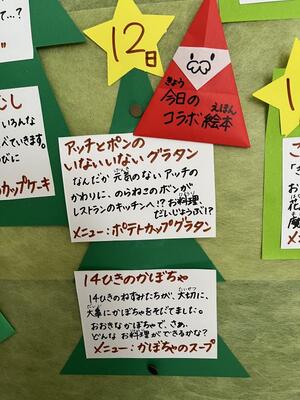 て…?
"
12日
きょう
今日の
えほん
コラボ絵本
アッチとポンの
いないいないグラタン
なんだか元気のないアッチの
かわりに、のらねこのボンが
レストランのキッチンへ!? お料理、
だいじょうぶ!?
メニュー:ポテトカップグラタン
14ひきのかぼちゃ
14ひきのねずみたちが、大切に、
大事にかぼちゃをそだてました。
おおきなかぼちゃで、さぁ、
どんなお料理ができるかな?
メニュー:かぼちゃのスープ
むし
いろんな
べていきます。
びに
カップケーキ
1